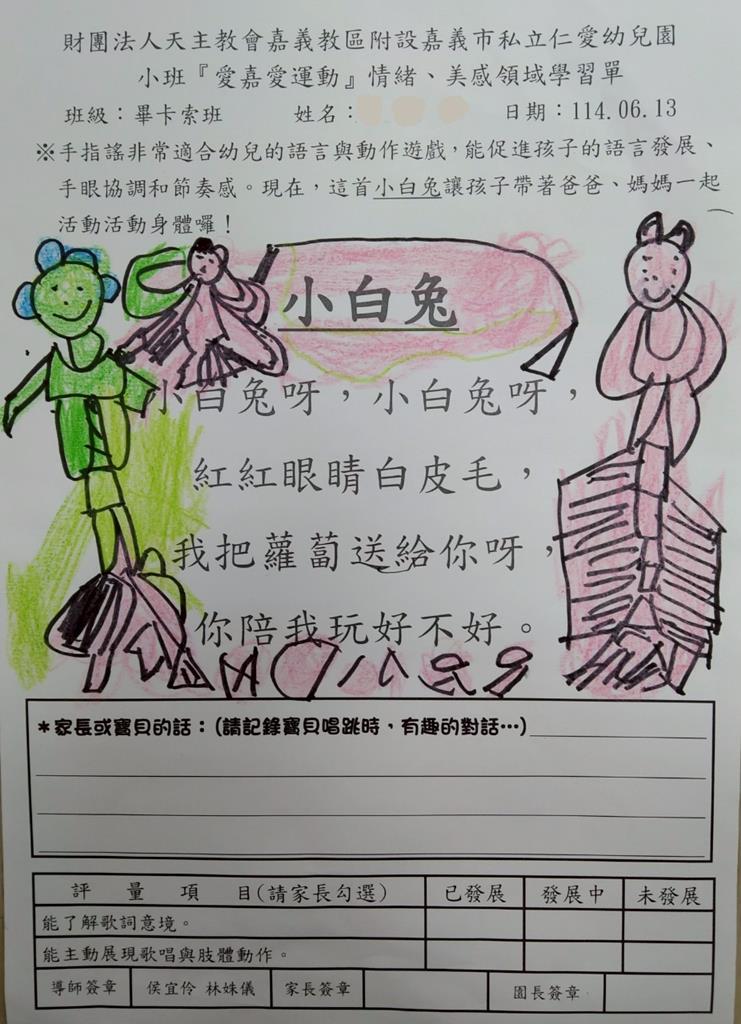 財團法人天主教會嘉義教區附設嘉義市私立仁愛幼兒園
小班『愛嘉愛運動』情緒、美感領域學習單
班級：畢卡索班 姓名： 日期：114.06.13
※手指謠非常適合幼兒的語言與動作遊戲，能促進孩子的語言發展、
手眼協調和節奏感。現在，這首小白兔讓孩子帶著爸爸、媽媽一起
活動活動身體囉！
小白兔
小白兔呀，小白兔呀，
紅紅眼睛白皮毛，
我把蘿蔔送給你呀，
你陪我玩好不好。
＊家長或寶貝的話：(請記錄寶貝唱跳時，有趣的對話…)
評量項目(請家長勾選) 已發展 發展中 未發展
能了解歌詞意境。
能主動展現歌唱與肢體動作。
導師簽章 侯宜伶 林姝儀 家長簽章 園長簽章